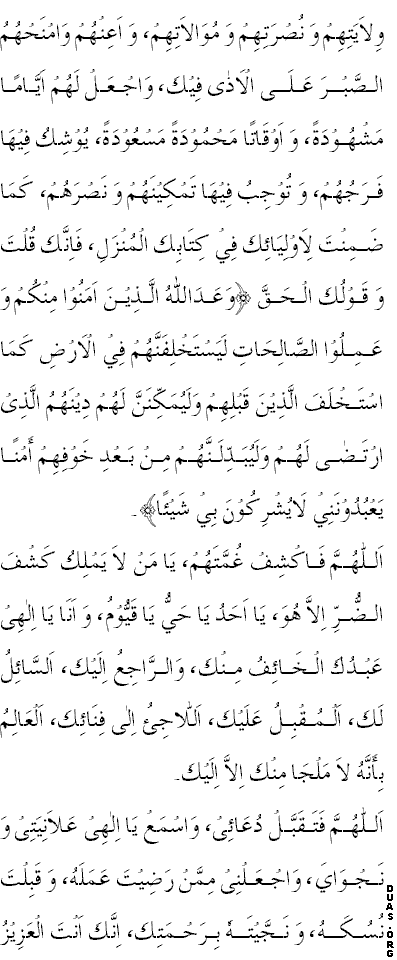 وِلاَيَتِهِمْ وَ نُصْرَتِهِمْ وَ مُوَالاَتِهِمْ، وَ اَعِنْهُمْ وَامْنَحْهُمُ
الصَّبْرَ عَلَى الْاَذٰى فِيْكَ، وَاجْعَلْ لَهُمْ اَيَّامًا
مَشْهُوْدَةً، وَ اَوْقَاتًا مَحْمُوْدَةً مَسْعُوْدَةً، يُوْشِكُ فِيْهَا
فَرَجُهُمْ، وَ تُوْجِبُ فِيْهَا تَمْكِيْنَهُمْ وَ نَصْرَهُمْ، كَمَا
ضَمِنْتَ لِاَوْلِيَائِكَ فِيْ كِتَابِكَ الْمُنْزَلِ، فَاِنَّكَ قُلْتَ
وَ قَوْلُكَ الْحَقَّ ﴿وَعَدَ اللّٰهُ الَّذِيْنَ اٰمَنُوْا مِنْكُمْ وَ
عَمِلُوْا الصَّالِحَاتِ لَيَسْتَخْلِفَنَّهُمْ فِيْ الْاَرْضِ كَمَا
اسْتَخْلَفَ الَّذِيْنَ قَبْلِهِمْ وَلَيُمَكِّنَنَّ لَهُمْ دِيْنَهُمُ الَّذِىْ
ارْتَضٰى لَهُمْ وَلَيُبَدِّلَنَّهُمْ مِنْ بَعْدِ خَوْفِهِمْ أَمْنًا
يَعْبُدُوْنَنِيْ لَايُشْرِكُوْنَ بِيْ شَيْئًا﴾.
اَللّٰهُمَّ فَاكْشِفْ غُمَّتَهُمْ، يَا مَنْ لاَ يَمْلِكُ كَشْفَ
الضُّرِّ اِلاَّ هُوَ، يَا اَحَدُ يَا حَيُّ يَا قَيُّوْمُ، وَ اَنَا يَا اِلٰهِىْ
عَبْدُكَ الْخَائِفُ مِنْكَ، وَالرَّاجِعُ اِلَيْكَ، اَلسَّائِلُ
لَكَ، اَلْمُقْبِلُ عَلَيْكَ، اَللاَّجِئُ اِلٰى فِنَائِكَ، اَلْعَالِمُ
بِأَنَّهُ لاَ مَلْجَا مِنْكَ اِلاَّ اِلَيْكَ.
اَللّٰهُمَّ فَتَقَبَّلْ دُعَائِىْ، وَاسْمَعْ يَا اِلٰهِىْ عَلاَنِيَتِىْ وَ
نَجْوَايَ، وَاجْعَلْنِىْ مِمَّنْ رَضِيْتَ عَمَلَهُ، وَ قَبِلْتَ
نُسُكَهُ، وَ نَجَّيْتَهُ بِرَحْمَتِكَ، اِنَّكَ اَنْتَ الْعَزِيْزُ
DUAS.ORG